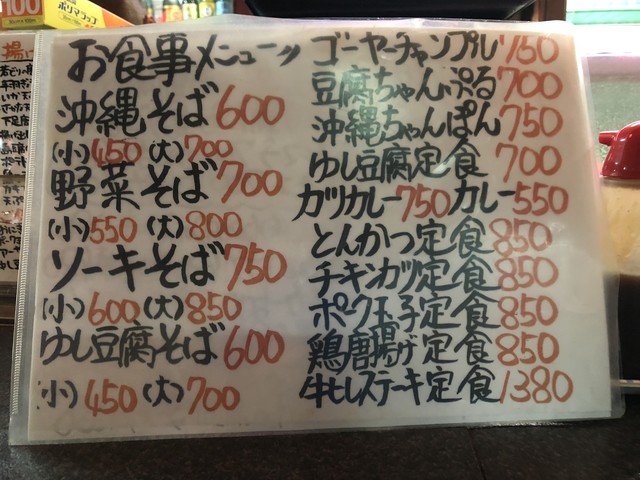 お食事メニュー〃
沖縄そば600
(小)450 (大)700
野菜そば700
(小)550 (大)800
ソーキそば750
(小)600 (大)850
ゆし豆腐そば600
(小)450 (大)700
ゴーヤーチャンプル750
豆腐ちゃんぷる700
沖縄ちゃんぽん750
ゆし豆腐定食700
カツカレー750 カレー550
とんかつ定食850
チキンカツ定食850
ポーク玉子定食850
鶏唐揚げ定食850
牛ヒレステーキ定食1380
100
ポリマラップ